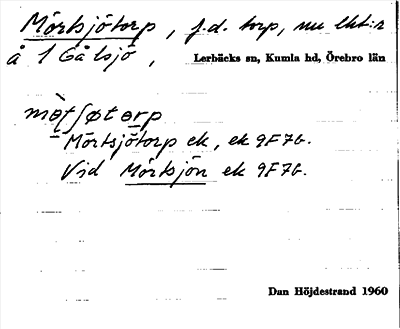 Mörtsjötorp, f.d. torp, nu lht:r
å 1 Gålsjö, Lerbäcks sn, Kumla hd, Örebro län
mø̱tʃøtərp
Mörtsjötorp ek, ek 9F7b.
Vid Mörtsjön ek 9F7b.
Dan Höjdestrand 1960